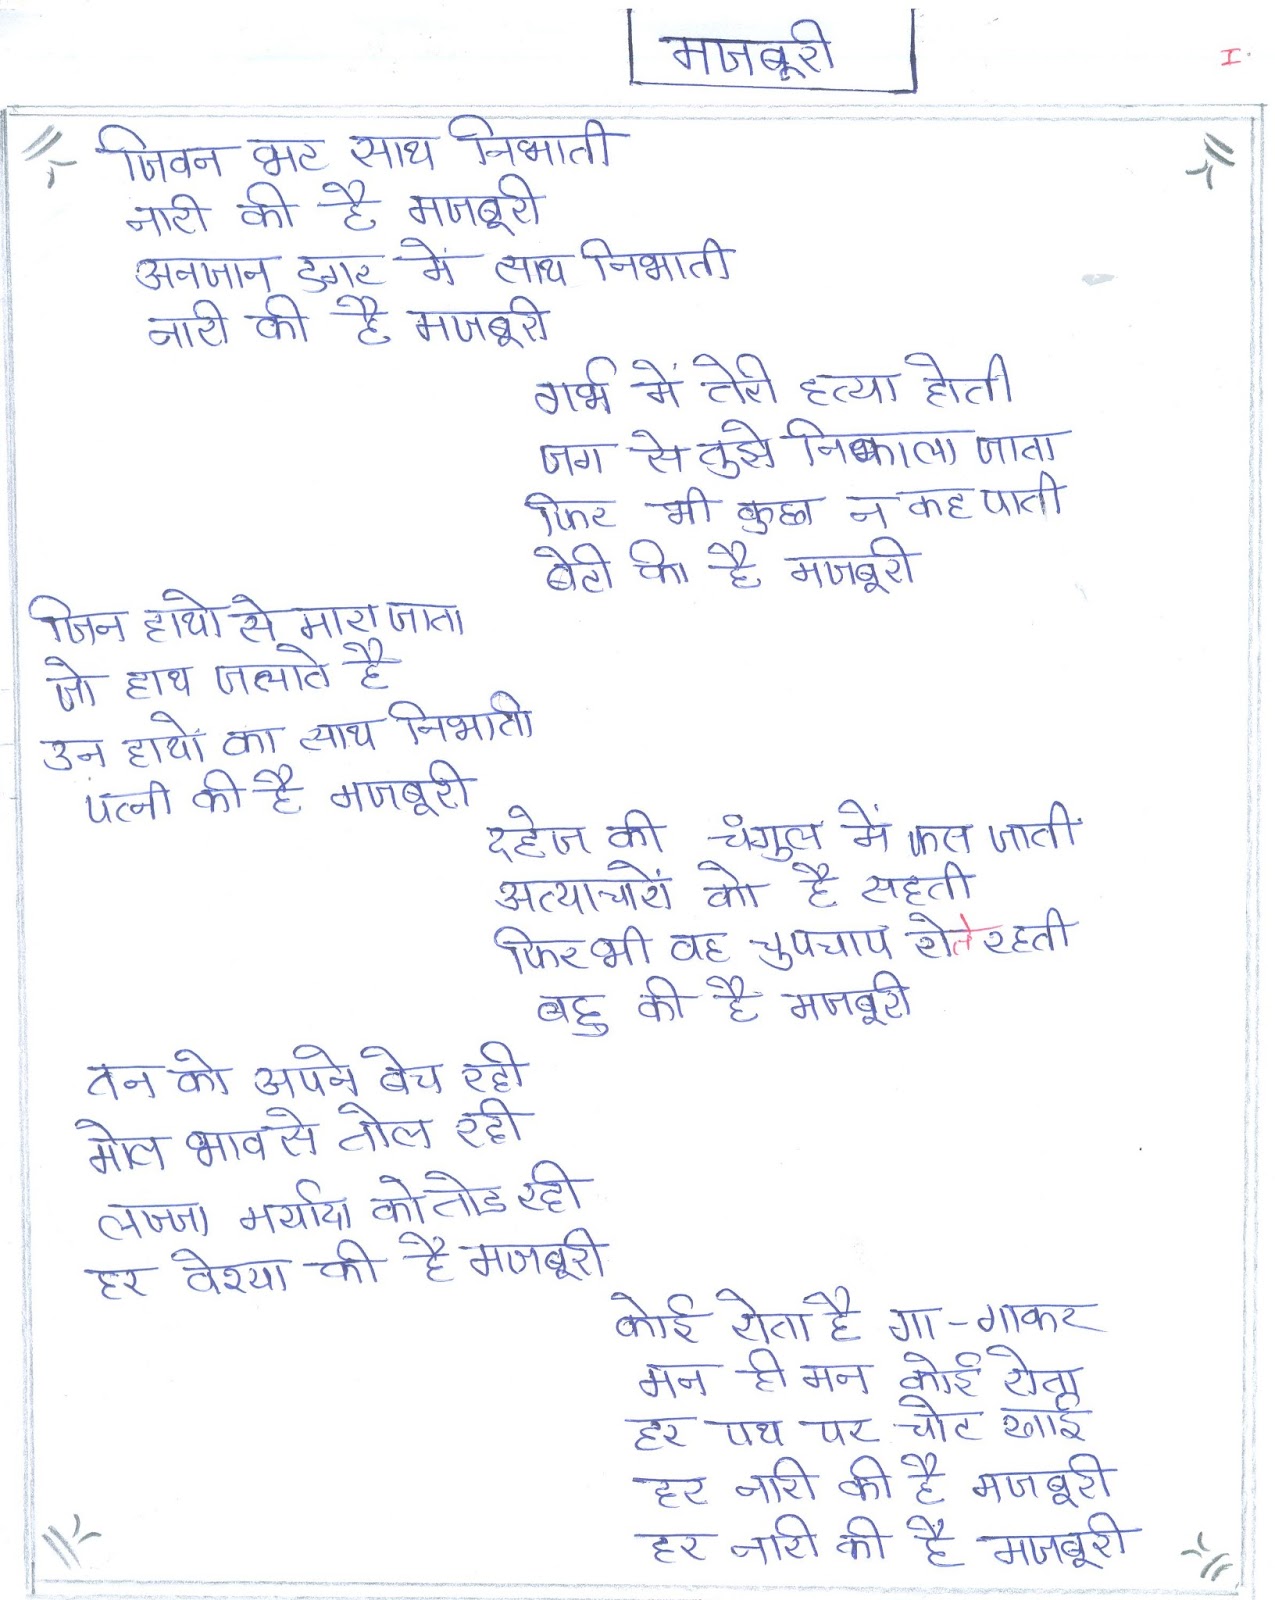 मजबूरी
I.
जिवन भर साथ निभाती
नारी की है मजबूरी
अनजान डगर में साथ निभाती
नारी की है मजबूरी
गर्भ में तेरी हत्या होती
जग से तुझे निकाला जाता
फिर भी कुछ न कह पाती
बेटी कि है मजबूरी
जिन हाथो से मारा जाता
जो हाथ जलाते है
उन हाथों का साथ निभाती
पत्नी की है मजबूरी
दहेज की चंगुल में फस जाती
अत्याचारों को है सहती
फिर भी वह चुपचाप रोते रहती
बहु की है मजबूरी
तन को अपने बेच रही
मोल भाव से तोल रही
लज्जा मर्यादा को तोड रही
हर वेश्या की है मजबूरी
कोई रोता है गा-गाकर
मन ही मन कोई रोता
हर पथ पर चोट खाई
हर नारी की है मजबूरी
हर नारी की है मजबूरी